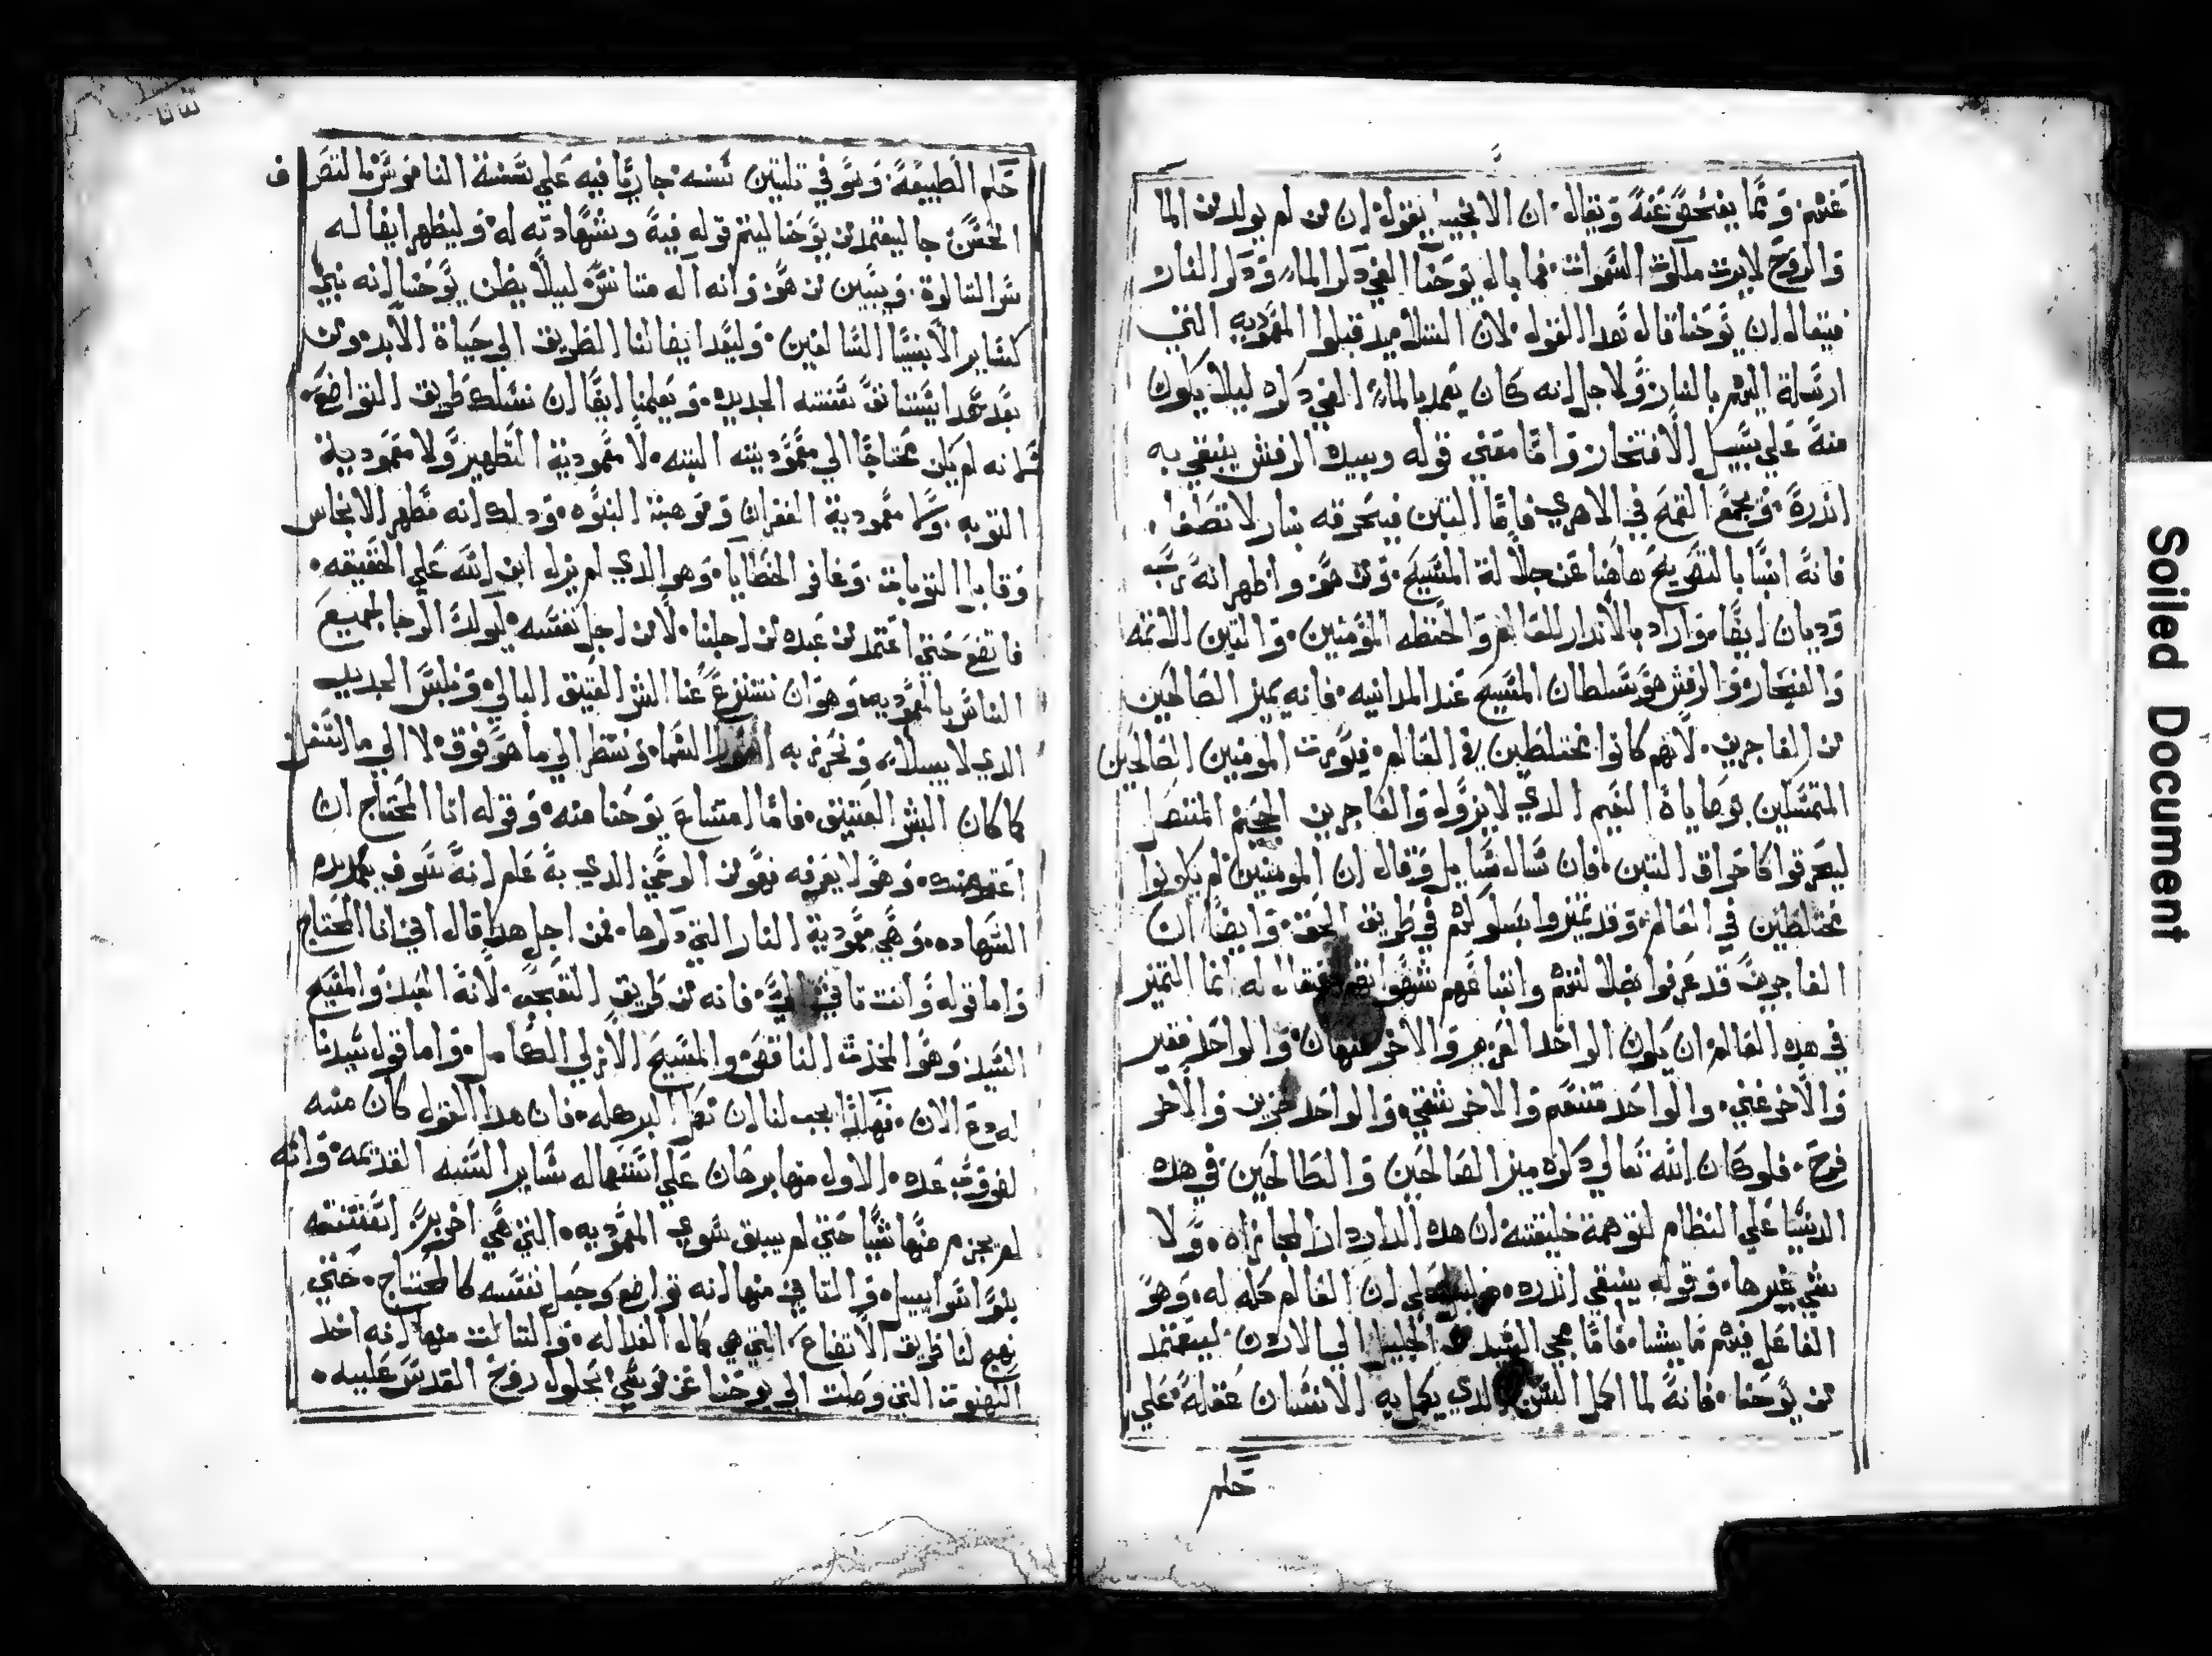 عنهم. ومما يفحص عنه ويقال. ان الانجيل يقول ان من لم يولد من الما
والروح لا يرث ملكوت السموات. فما بال يوحنا الذي ذكر الماء. وذكر النار
فيقال ان يوحنا قال هدا القول. لان التلاميد قبلوا المعموديه التي
ارسلة اليهم بالنار. ولاجل انه كان يعمد بالماء الذي ذكره ليلا يكون
منه علي سبيل الافتخار. واما معني قوله وبيده الرفش ينقي به
اندرة. ويجمع القمح في الاهري. فاما التبن فيحرقه بنار لا تطفا.
فانه انبا بالتصريح هاهنا عن جلالة المسيح. ومن هو واظهر انه رب
وديان ايضا. واراد بالاندر للعالم والحنطه المؤمنين. والتبن الاتمه
والفجار. والرفش هو سلطان المسيح عند المداينه. فانه يميز الصالحين
من الفاجرين. لانهم كانوا مختلطين في العالم. فيورث المؤمنين الصالحين
المتمسكين بوصاياة النعيم الدي لا يزول. والفاجرين الجحيم المتصل
ليحرقوا كاحراق التبن. فان سال سايل وقال ان المومنين لم يكونوا
مختلطين في العالم. وقد تميزوا بسلوكهم في طريق الحق. وايضا ان
الفاجرين قد عرفوا بضلالتهم واتباعهم شهواتهم. فيقال له انما التميز
في هده العالم ان يكون الواحد العزيز والاخر مهان. والواحد فقير
والاخر غني. والواحد متنعم والاخر شقي. والواحد حزين والاخر
فرح. فلو كان الله تعالي دكره ميز الصالحين والطالحين في هده
الدنيا علي النظام لتوهمة خليقته ان هده الدار دار المجازاه. ولا
شي غيرها. وقوله ينقي اندره. علي ان العالم كله له. وهو
الفاعل فيهم ما يشا. فاما مجي السيد من الجليل الي الاردن ليعتمد
من يوحنا. فانه لما اكمل السن الدي يكمل به الانسان عقله. علي
حكم
حكم الطبيعة. وهو في تلتين سنه. جاريا فيه علي سنة الناموس بالتصرف
الحسن جا ليعتمد من يوحنا ليتم قوله فية وشهادته له. وليظهر ايضا له
سر التالوة. ويبين من هو. وانه اله متانس. ليلا يظن يوحنا انه نبي
كساير الانبيا السالفين. وليعد ايضا لنا الطريق الي حياة الابد. ومن
بعد هدا يستانف سنته الجديده. ويعلمنا ايضا ان نسلك طريق التواضع.
ثم انه لم يكن محتاجا الي معموديته البته. لا معمودية التطهير ولا معمودية
التوبه. ولا معمودية الغفران وموهبة البنوه. ودلك انه مطهر الانجاس
وقابل التوبات. وغافر الخطايا. وهو الدي لم يزل ابن الله علي الحقيقه.
فاتضع حتي اعتمد من عبده من اجلنا. لا من اجل نفسه. ليوكد الرجا لجميع
الناس بالمعموديه. وهو ان ننتزع عنا البشر العتيق البالي. ونلبس الجديد
الدي لا يبلا. ونحرز به السما. وننظر الي ما هو فوق. لا الي ما اسفل
كما كان البشر العتيق. فاما امتناع يوحنا منه. وقوله انا المحتاج ان
اعتمد منك. وهو لا يعرفه فهو من الوحي الدي به علم انه سوف يكمل
الشهاده. وهي معمودية النار التي دكرها. فمن اجل هدا قال اني انا المحتاج
واما قوله وانت تاتي الي. فانه من طريق التعجب. لانه العبد. والمسيح
السيد وهو المحدث الناقص. والمسيح الازلي الكامل. واما قول سيدنا
له دع الان. فهكدا يجب لنا ان نكمل البر كله. فان هدا القول كان منه
لفروق عده. الاول منها برهان علي استكماله ساير السنه القديمه. وانه
لم يخرم منها شيا حتي لم يبق سوي المعموديه. التي هي اخر
بنو اسراييل. والتاني منها انه تواضع وجعل نفسه كالمحتاج. حتي
نهج لنا طريق الاتضاع. التي هي كمال العداله. والتالت منها انه اخد
الكهنوت التي وصلت الي يوحنا عن موسي بحلول روح القدس عليه.
Soiled Document